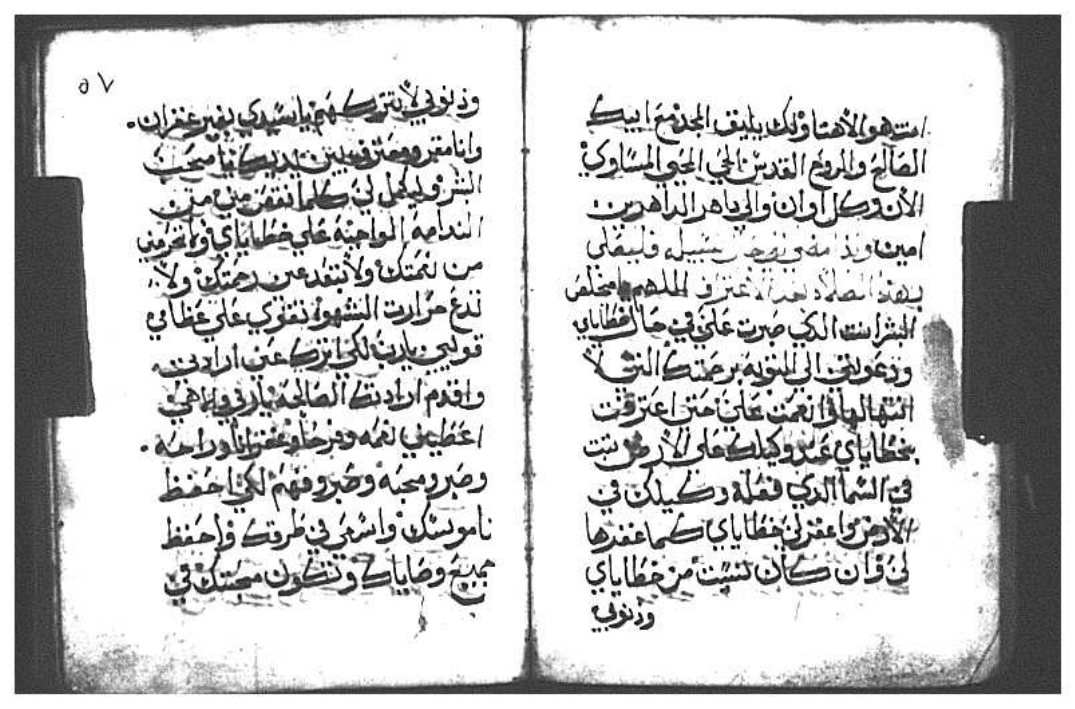 انت هو الاهنا ولك يليق المجد مع ابيك
الصالح والروح القدس الحي المحيي المساوي
الان وكل اوان والي دهر الداهرين
امين
بهذه الصلاه بعد الاعتراف اللهم يا مخلص
البشر انت الدي صبرت علي في حال خطاياي
ودعوتني الي التوبه برحمتك التي لا
انتها لها وانعمت علي حتي اعترفت
بخطاياي عند وكيلك علي الارض تبت
في السما الدي فعله وكيلك في
الارض واغفر لي خطاياي كما غفرها
لي وان كان نسيت من خطاياي
وذنوبي
٥٧
وذنوبي لا تتركهم يا سيدي بغير غفران.
وانا مقر ومعترف بين يديك يا محب
البشر وليكمل لي كلما نقص مني من
الندامه الواجبه علي خطاياي ولا تحرمني
من نعمتك ولا تبعد عني رحمتك ولا
تدع حرارت الشهوه تقوي علي عظامي
قويني يارب لكي اترك عني ارادتي
واقدم ارادتك الصالحه يا ربي والاهي
اعطيني نعمه وفرحا وغفرانا وراحه.
وصبر ومحبه وصبر وفهم لكي احفظ
ناموسك واسعي في طرقك واحفظ
جميع وصاياك وتكون محبتك في